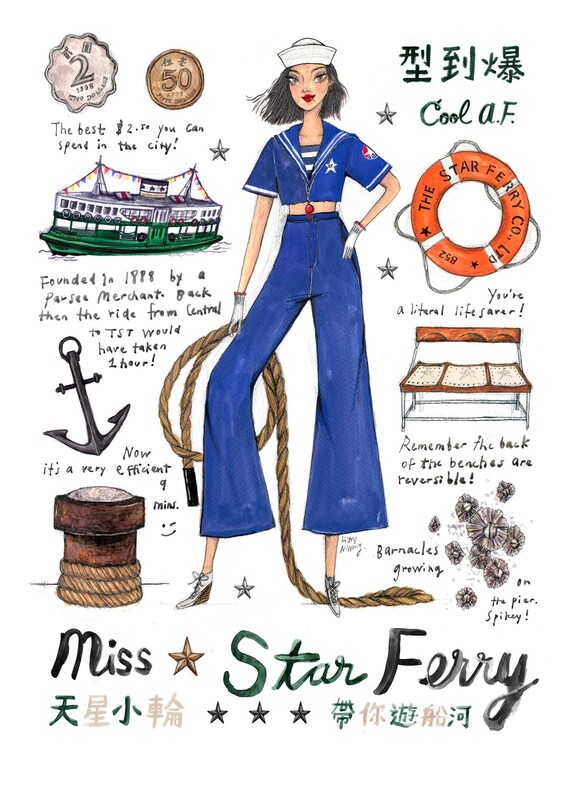 貳圓
2
1998
TWO DOLLARS
伍毫
50
FIFTY CENTS
型到爆
Cool A.F.
The best $2.50 you can
spend in the city!
THE STAR FERRY CO., LTD
852
Founded in 1888 by a
Parsee Merchant. Back
then the ride from Central
to TST would
have taken
1 hour!
You're
a literal lifesaver!
Now
it's a very efficient
9
mins.
:)
Remember the back
of the benches are
reversible!
Barnacles
growing
on
the pier.
Spikey!
Miss Star Ferry
天星小輪
帶你遊船河